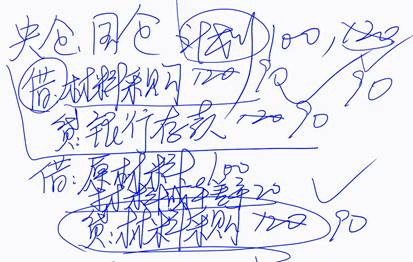 央仓、国仓 计划 100, 120 90
借: 材料采购 120 90
贷: 银行存款 120 90
借: 原材料 100
材料成本差异 20
贷: 材料采购 120 90